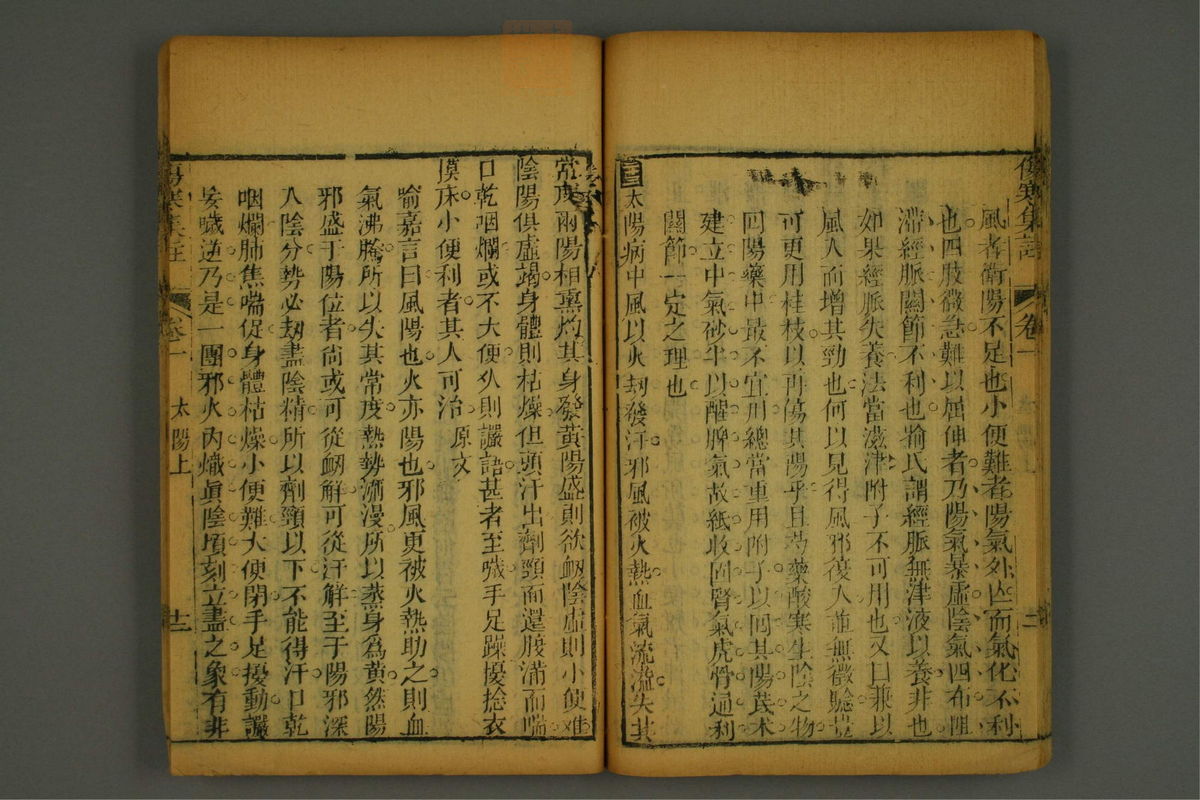 傷寒集註
卷一
十二
風者衞陽不足也小便難者陽氣外亾而氣化不利
也四肢微急難以屈伸者乃陽氣暴虛陰氣四布阻
滯經脈關節不利也喻氏謂經脈無津液以養非也
如果經脈失養法當滋津附子不可用也又曰兼以
風人而增其勁也何以見得風邪復入並無微驗豈
可更用桂枝以再傷其陽乎且芍藥酸寒生陰之物
囘陽藥中最不宜用總當重用附子以囘其陽茋朮
建立中氣砂半以醒脾氣故紙收固腎氣虎骨通利
關節一定之理也
太陽病中風以火刧發汗邪風被火熱血氣流溢失其
常度兩陽相熏灼其身發黃陽盛則欲衂陰虛則小便难
陰陽俱虛竭身體則枯燥但頭汗出劑頸而還腹滿而喘
口乾咽爛或不大便久則讝語甚者至噦手足躁擾捻衣
摸床小便利者其人可治 原文
喻嘉言曰風陽也火亦陽也邪風更被火熱助之則血
氣沸騰所以失其常度熱勢瀰漫所以蒸身爲黃然陽
邪盛于陽位者尙或可從衂解可從汗解至于陽邪深
入陰分勢必刼盡陰精所以劑頸以下不能得汗口乾
咽爛肺焦喘促身體枯燥小便難大便閉手足擾動讝
妄噦逆乃是一團邪火內熾眞陰頃刻立盡之象有非
傷寒集註
卷一
太陽上
十二